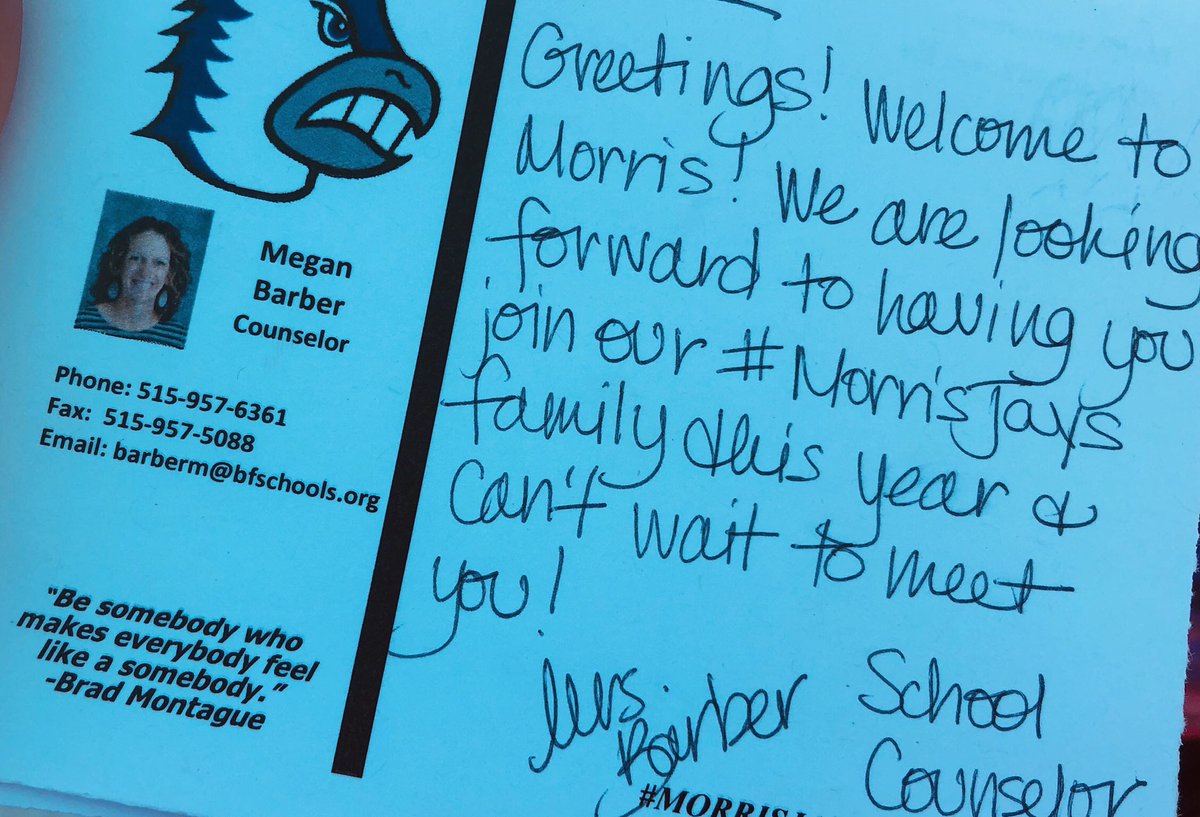 Megan
Barber
Counselor
Phone: 515-957-6361
Fax: 515-957-5088
Email: barberm@bfschools.org
"Be somebody who
makes everybody feel
like a somebody."
-Brad Montague
Greetings! Welcome to
Morris! We are looking
forward to having you
join our #MorrisJays
family this year &
Can't wait to meet
you!
Mrs. Barber School
Counselor
#MORRIS